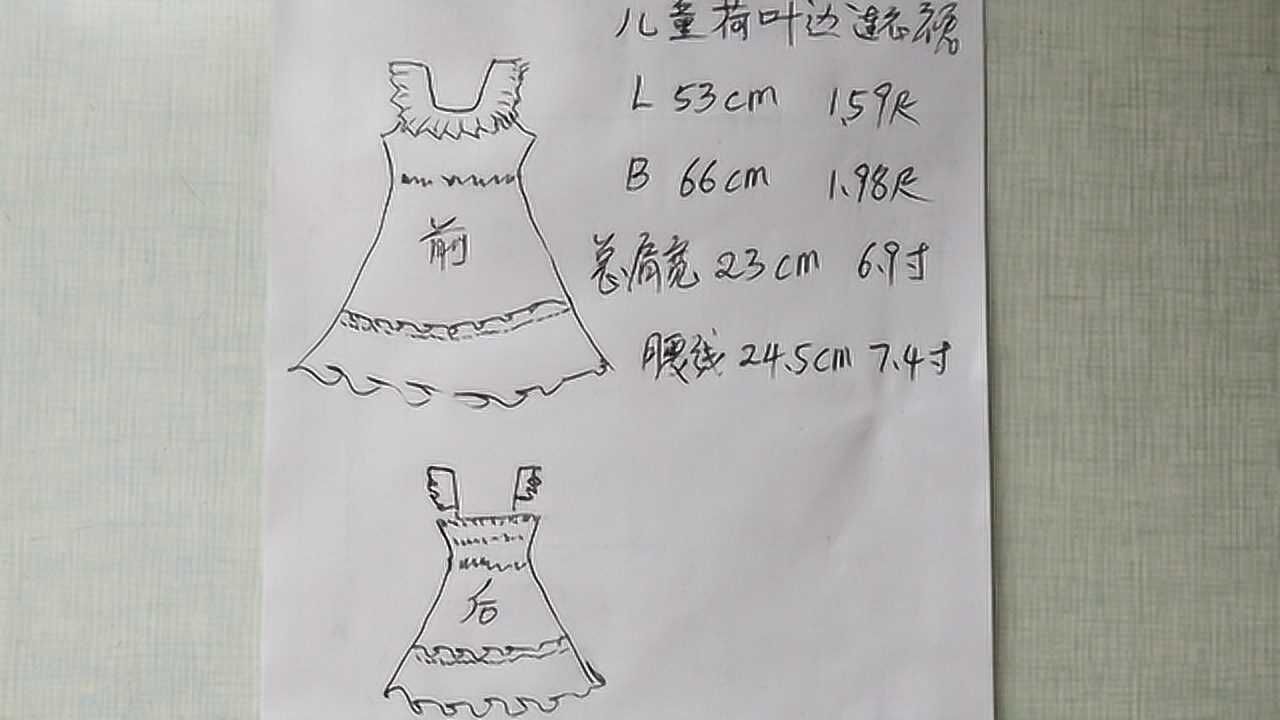 儿童荷叶边连衣裙
L 53cm 1.59尺
B 66cm 1.98尺
总肩宽 23cm 6.9寸
腰线 24.5cm 7.4寸
前
后